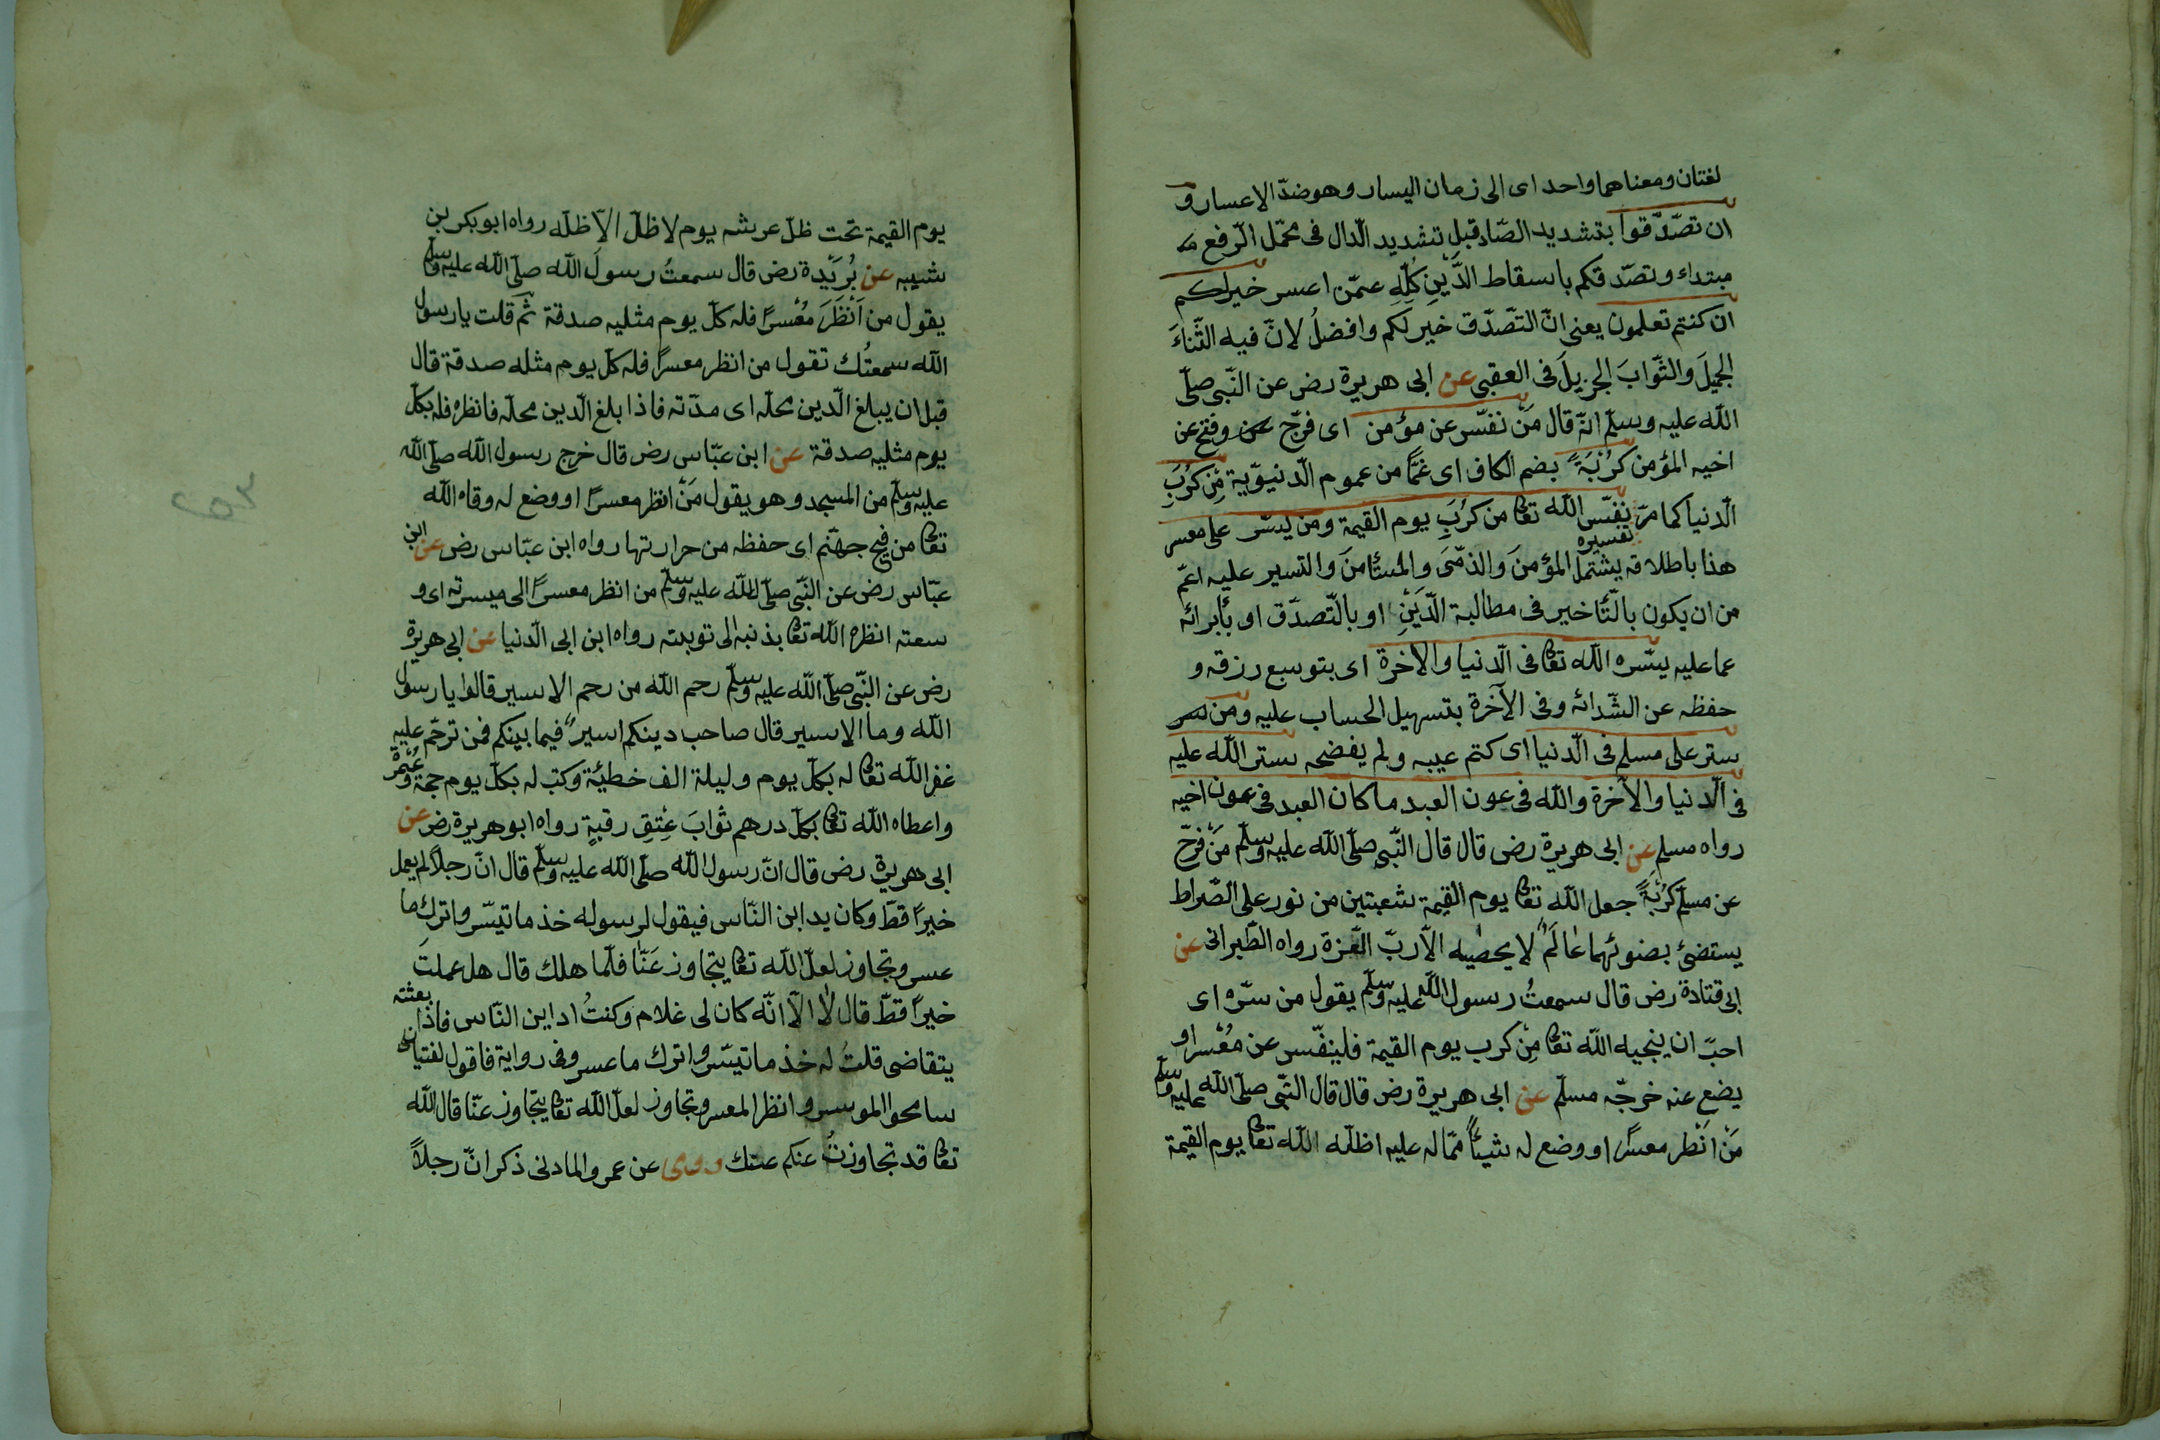 لغتان ومعناهما واحد اى الى زمان اليسار وهو ضدّ الاعسار و
ان تصّدّقوا بتشديد الصّاد قبل تشديد الدّال فى محّل الرّفع
مبتداء وتصدّقكم باسقاط الدَّيْنِ كُلِّهِ عمّن اعسر خير لكم
ان كنتم تعلمون يعنى انّ التّصدّق خير لكم وافضلُ لانّ فيه الثّناءَ
الجميلَ والثّوابَ الجزيلَ فى العقبى عن ابى هريرة رض عن النّبى صلّى
الله عليه وسلّم انّه قال مَنْ نفّس عن مؤمن اى فرّج وفتح عن
اخيه المؤمن كُرْبَةً بضم الكاف اى غمًّا من عموم الدّنيويّة مِن كُرَبِ
الدّنيا كما مرّ تفسيره نفّس الله تعا من كرَبِ يوم القيمة ومن يسّر على معسر
هذا باطلاقه يشتمل المؤمنَ والذمّىَ والمستأمنَ والتسير عليه اعمّ
من ان يكون بالتّأخير فى مطالبة الدَّيْنِ او بالتّصدّق او بأبرائه
عما عليه يسّره الله تعا فى الدّنيا والاخرة اى بتوسع رزقه و
حفظه عن الشّدائه وفى الآخرة بتسهيل الحساب عليه ومن
ستر على مسلم فى الدّنيا اى كتم عيبه ولم يفضحه ستر الله عليه
فى الدّنيا والآخرة والله فى عون العبد ما كان العبد فى عون اخيه
رواه مسلم عن ابى هريرة رض قال قال النّبى صلّى الله عليه وسلّم مَنْ فرّج
عن مسلم كُرْبَةً جعل الله تعا يوم القيمة شعبتين من نور على الصّراط
يستضئ بضوئهما عَالَمٌ لا يحصيه الاّ ربّ العّزة رواه الطّبرانى عن
ابى قتادة رض قال سمعتُ رسول الله عليه وسلّم يقول من سّره اى
احبّ ان ينجيه الله تعا مِنْ كرب يوم القيمة فلينفّس عن مُعْسرٍ او
يضع عنه خرجّه مسلّم عن ابى هريرة رض قال قال النّبى صلّى الله عليه وسلّم
مَنْ انْظر معسرًا او وضع له شيئًا ممّا له عليه اظلّه الله تعا يوم القيمة
يوم القيمة تحت ظلّ عرشه يوم لا ظلّ الاّ ظلّه رواه ابو بكر بن
شيبه عن بُرَيْدة رض قال سمعتُ رسولَ الله صلّى الله عليه وسلّم
يقول من اَنْظَرَ مُعْسرًا فله كلّ يوم مثليه صدقة ثم قلت يا رسول
الله سمعتُك تقول من انظر معسرًا فله كلّ يوم مثله صدقة قال
قبل ان يبلغ الدّين محلّه اى مدّته فاذا بلغ الدّين محلّه فانظره فله بكلّ
يوم مثليه صدقة عن ابن عبّاس رض قال خرج رسول الله صلّى الله
عليه وسلّم من المسجد وهو يقول مَنْ انظر معسرًا او وضع له وقاه الله
تعا من فيح جهنّم اى حفظه من حرارتها رواه ابن عبّاس رض عن ابن
عبّاس رض عن النّبى صلّى الله عليه وسلّم من انظر معسرًا الى ميسرته اى و
سعته انظره الله تعا بذنبه الى توبته رواه ابن ابى الدّنيا عن ابى هريرة
رض عن النّبى صلّى الله عليه وسلّم رحم الله من رحم الاسير قالوا يا رسول
الله وما الاسير قال صاحب دينكم اسيرٌ فيما بينكم فمن ترحّم عليه
غفر الله تعا له بكلّ يوم وليلة الف خطيئة وكتب له بكلّ يوم حجة وعُمْرة
واعطاه الله تعا بكلّ درهم ثوابَ عِتِق رقبةٍ رواه ابو هريرة رض عن
ابى هريرة رض قال انّ رسول الله صلّى الله عليه وسلّم قال انّ رجلاً لم يعمل
خيرًا قطّ وكان يداين النّاس فيقول لرسوله خذ ما تيسّر واترك ما
عسر وتجاوز لعلّ الله تعا يتجاوز عَنّا فلّما هلك قال هل عملتَ
خيرًا قطّ قال لا الاّ انّه كان لى غلام وكنتُ اداين النّاس فاذا بعثته
يتقاضى قلتُ له خذ ما تيسّر واترك ما عسر وفى رواية فاقول لفتيانى
سامحوا الموسر وانظر المعسر وتجاوز لعلّ الله تعا يتجاوز عنّا قال الله
تعا قد تجاوزتُ عنكم عنك روى عن عمر والمادنى ذكر انّ رجلاً